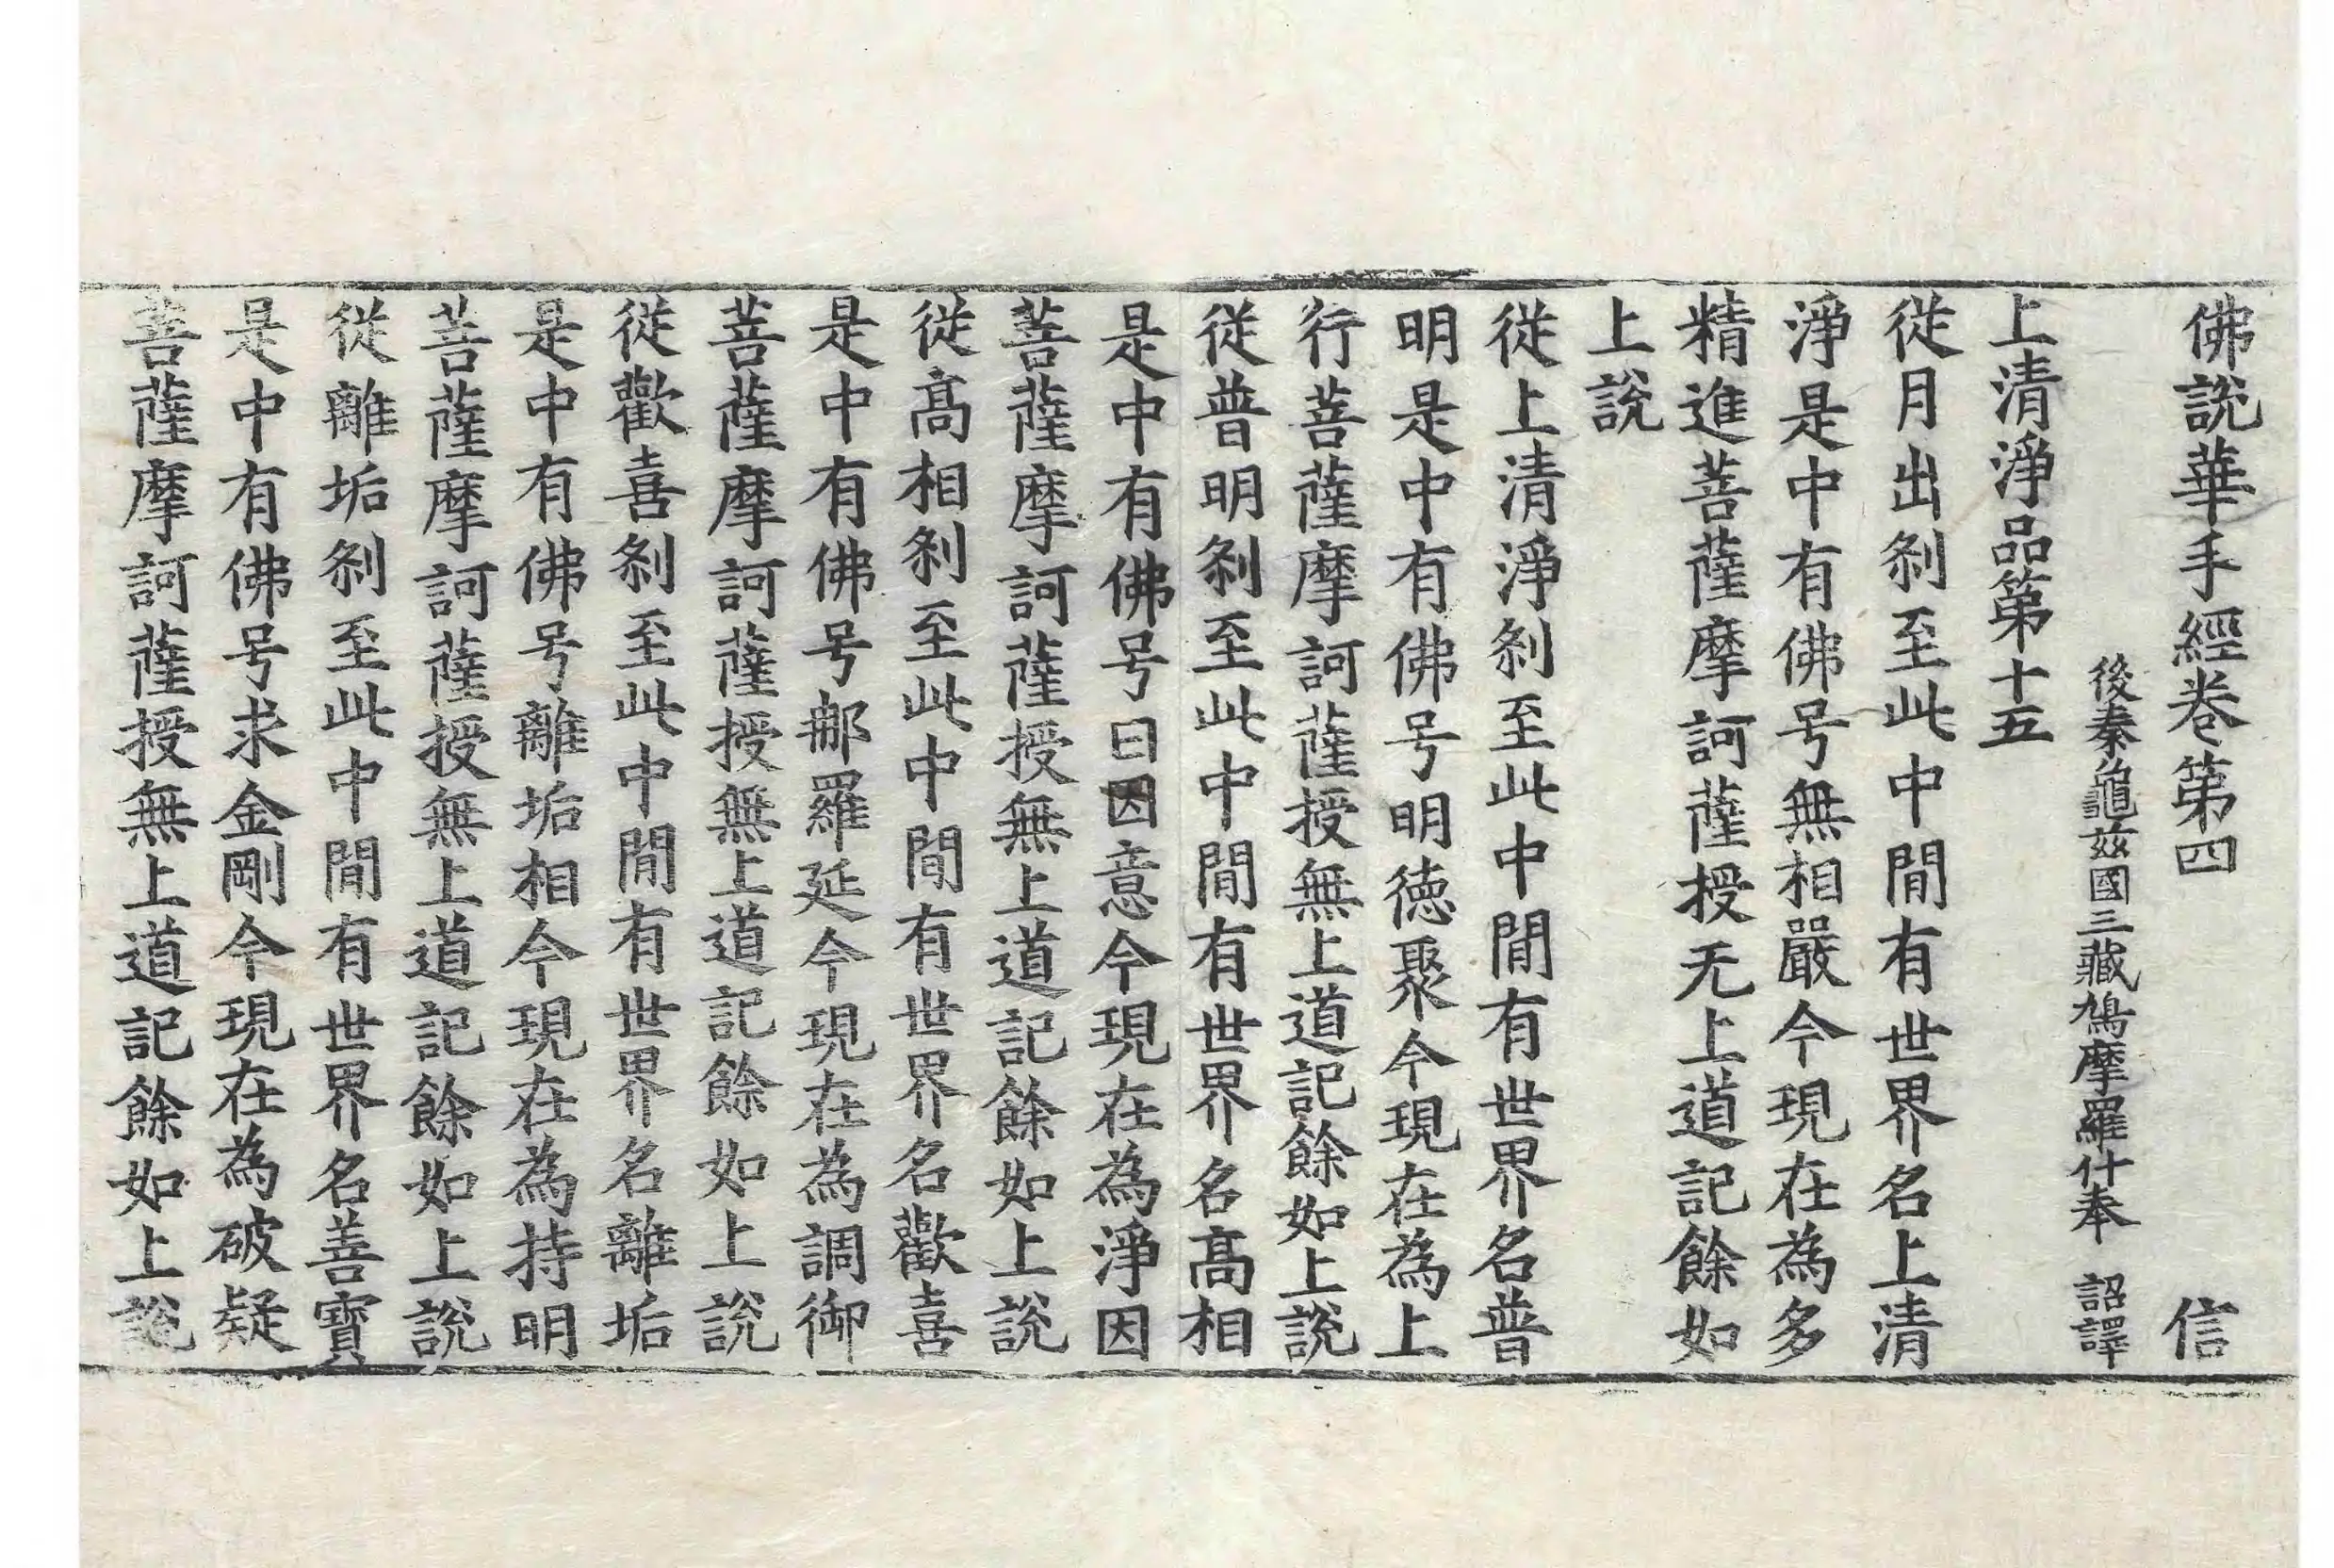 佛說華手經卷第四 信
後秦龜茲國三藏鳩摩羅什奉 詔譯
上清淨品第十五
從月出刹至此中間有世界名上清
淨是中有佛号無相嚴今現在為多
精進菩薩摩訶薩授无上道記餘如
上說
從上清淨刹至此中間有世界名普
明是中有佛号明德聚今現在為上
行菩薩摩訶薩授無上道記餘如上說
從普明刹至此中間有世界名高相
是中有佛号曰因意今現在為淨因
菩薩摩訶薩授無上道記餘如上說
從高相刹至此中間有世界名歡喜
是中有佛号郍羅延今現在為調御
菩薩摩訶薩授無上道記餘如上說
從歡喜刹至此中間有世界名離垢
是中有佛号離垢相今現在為持明
菩薩摩訶薩授無上道記餘如上說
從離垢刹至此中間有世界名善寶
是中有佛号求金剛今現在為破疑
菩薩摩訶薩授無上道記餘如上說